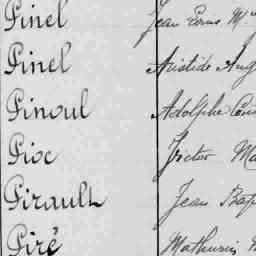 Pinel Jean Louis M
Pinel Aristide Aug
Pinoul Adolphe
Pioc Victor Ma
Pirault Jean Bap
Piré Mathurin